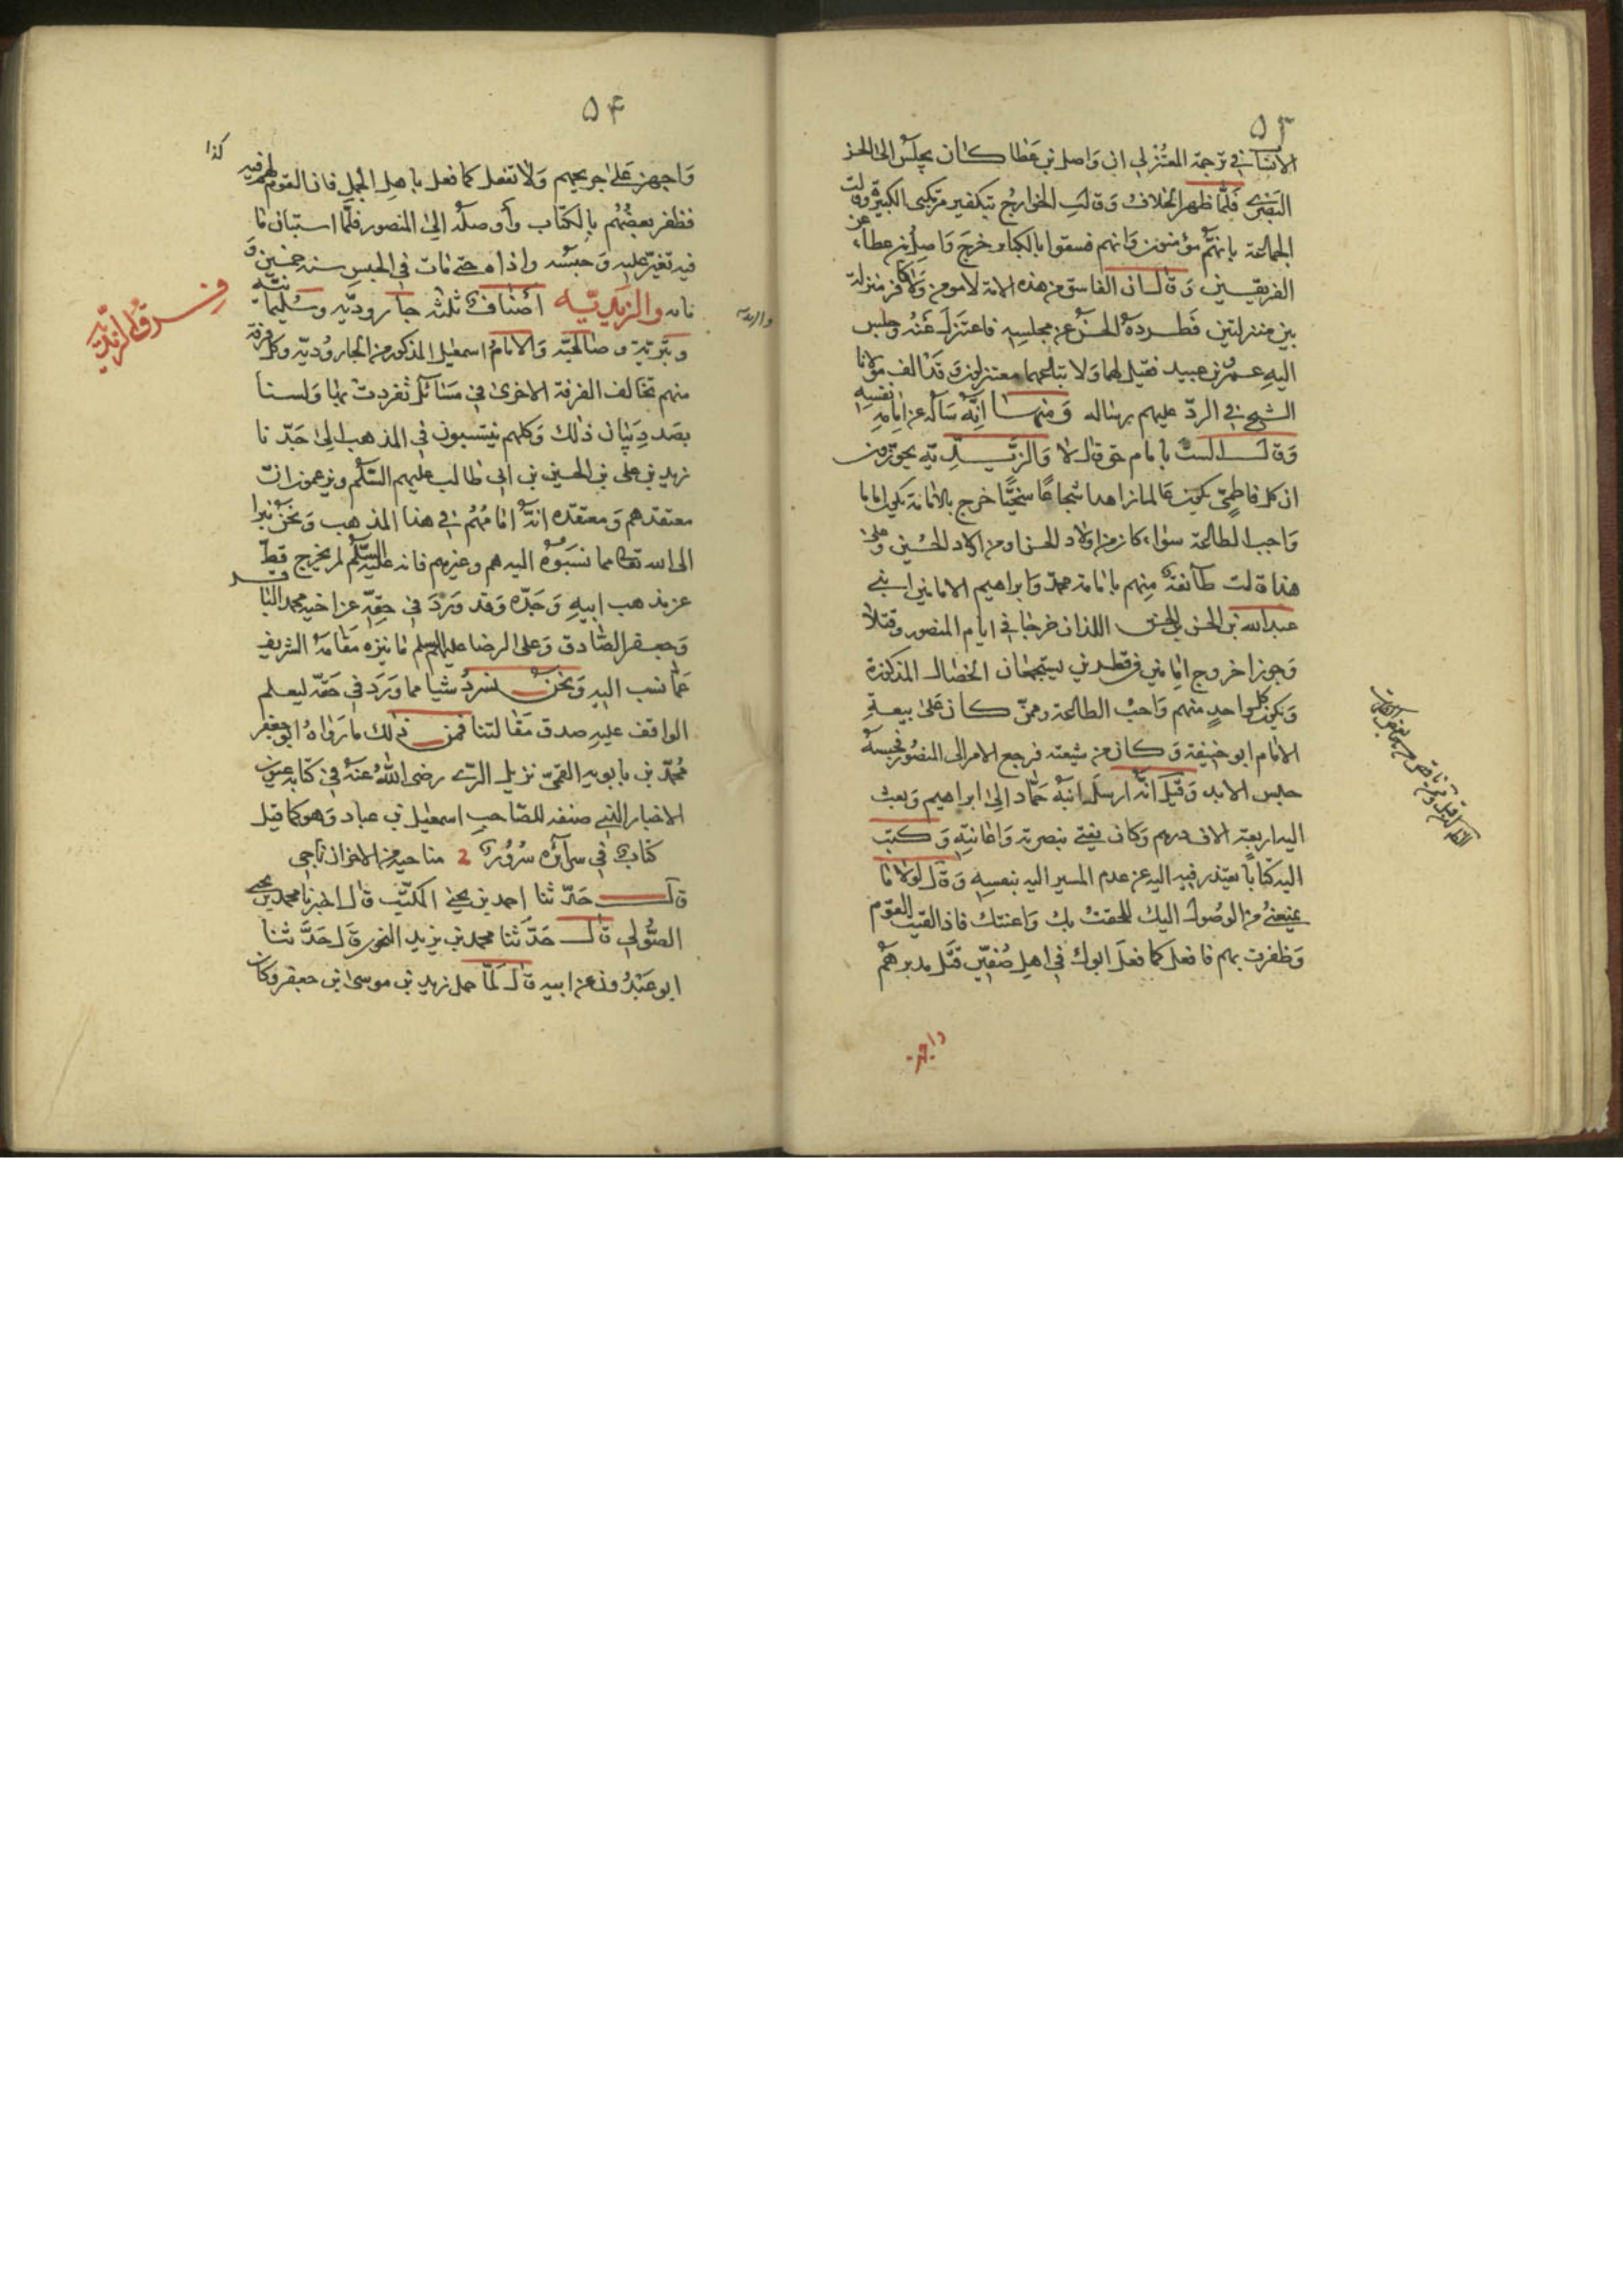 ۵۳
الانساب في ترجمة المعتزلي ان واصل بن عطا كان يجلس الى الحسن
البصري فلما ظهر الخلاف وقالت الخوارج بتكفير مرتكبي الكبيرة وقالت
الجماعة بانهم مؤمنون وانهم فسقوا بالكبائر خرج واصل بن عطاء عن
الفريقين وقال ان الفاسق من هذه الامة لا مومن ولا كافر منزلة
بين منزلتين فطرده الحسن عن مجلسه فاعتزل عنه وجلس
اليه عمرو بن عبيد فقيل لهما ولاتباعهما معتزلون وقد الف مولانا
الشيخ في الرد عليهم رساله ومنها انه ساله عن امامة نفسه
وقال الست بامام حق قال لا والزيدية يجوزون
ان كل فاطمي يكون عالما زاهدا شجاعا سخيا خرج بالامامة يكون اماما
واجب الطاعة سواء كان من اولاد الحسن او من اولاد الحسين وعلى
هذا قالت طائفة منهم بامامة محمد وابراهيم الامامين ابني
عبد الله بن الحسن بن الحسن اللذان خرجا في ايام المنصور وقتلا
وجوزا خروج امامين في قطرين يستجمعان الخصال المذكورة
ويكون كل واحد منهم واجب الطاعة وممن كان على بيعته
الامام ابو حنيفة وكان من شيعته فرجع الامر الى المنصور فحبسه
حبس الابد وقيل انه ارسل ابنه حماد الى ابراهيم وبعث
اليه اربعة الاف درهم وكان يفتي بنصرته واعانته وكتب
اليه كتابا يعتذر فيه اليه عن عدم المسير اليه بنفسه وقال لولا ما
يمنعني من الوصول اليك للحقت بك واعنتك فاذا لقيت القوم
وظفرت بهم فافعل كما فعل ابوك في اهل صفين قتل مدبرهم
واجهز
۵۴
واجهز على جريحهم ولا تفعل كما فعل باهل الجمل فان القوم لهم فيه
كذا
فظفر بعضهم بالكتاب وأوصله الى المنصور فلما استبان ما
فيه تغير عليه وحبسه واذاه حتى مات في الحبس سنه خمسين و
مائه والزيديه اصناف ثلثه جاروديه وسليمانيه
والزيديه
فرقة الزيديه
وبترية وصالحيه والامام اسمعيل المذكور من الجاروديه وكل فرقة
منهم تخالف الفرقة الاخرى في مسائل تفردت بها ولسنا
بصدد بيان ذلك وكلهم ينتسبون في المذهب الى جدنا
زيد بن على بن الحسين بن ابي طالب عليهم السلم ويزعمون ان
معتقدهم ومعتقده انه امامهم في هذا المذهب ونحن نبرا
الى الله تعالى مما نسبوه اليه هم وغيرهم فانه عليه السلم لم يخرج قط
عن مذهب ابيه وجده وقد ورد في حقه عن اخيه محمد الباقر
وجعفر الصادق وعلى الرضا عليهم السلم ما ينزه مقامه الشريف
عما نسب اليه ونحن نسرد شيئا مما ورد في حقه ليعلم
الواقف عليه صدق مقالتنا فمن ذلك ما رواه ابو جعفر
محمد بن بابويه القمي نزيل الري رضى الله عنه في كتابه عيون
الاخبار الذي صنفه للصاحب اسمعيل بن عباد وهو كما قيل
كتاب في سرائره سرور مناجيه من الاحزان ناجي
قال حدثنا احمد بن يحيى المكتب قال اخبرنا محمد بن يحيى
الصولي قال حدثنا محمد بن يزيد النحوي قال حدثنا
ابو عبدون عن ابيه قال لما حمل زيد بن موسى بن جعفر وكان